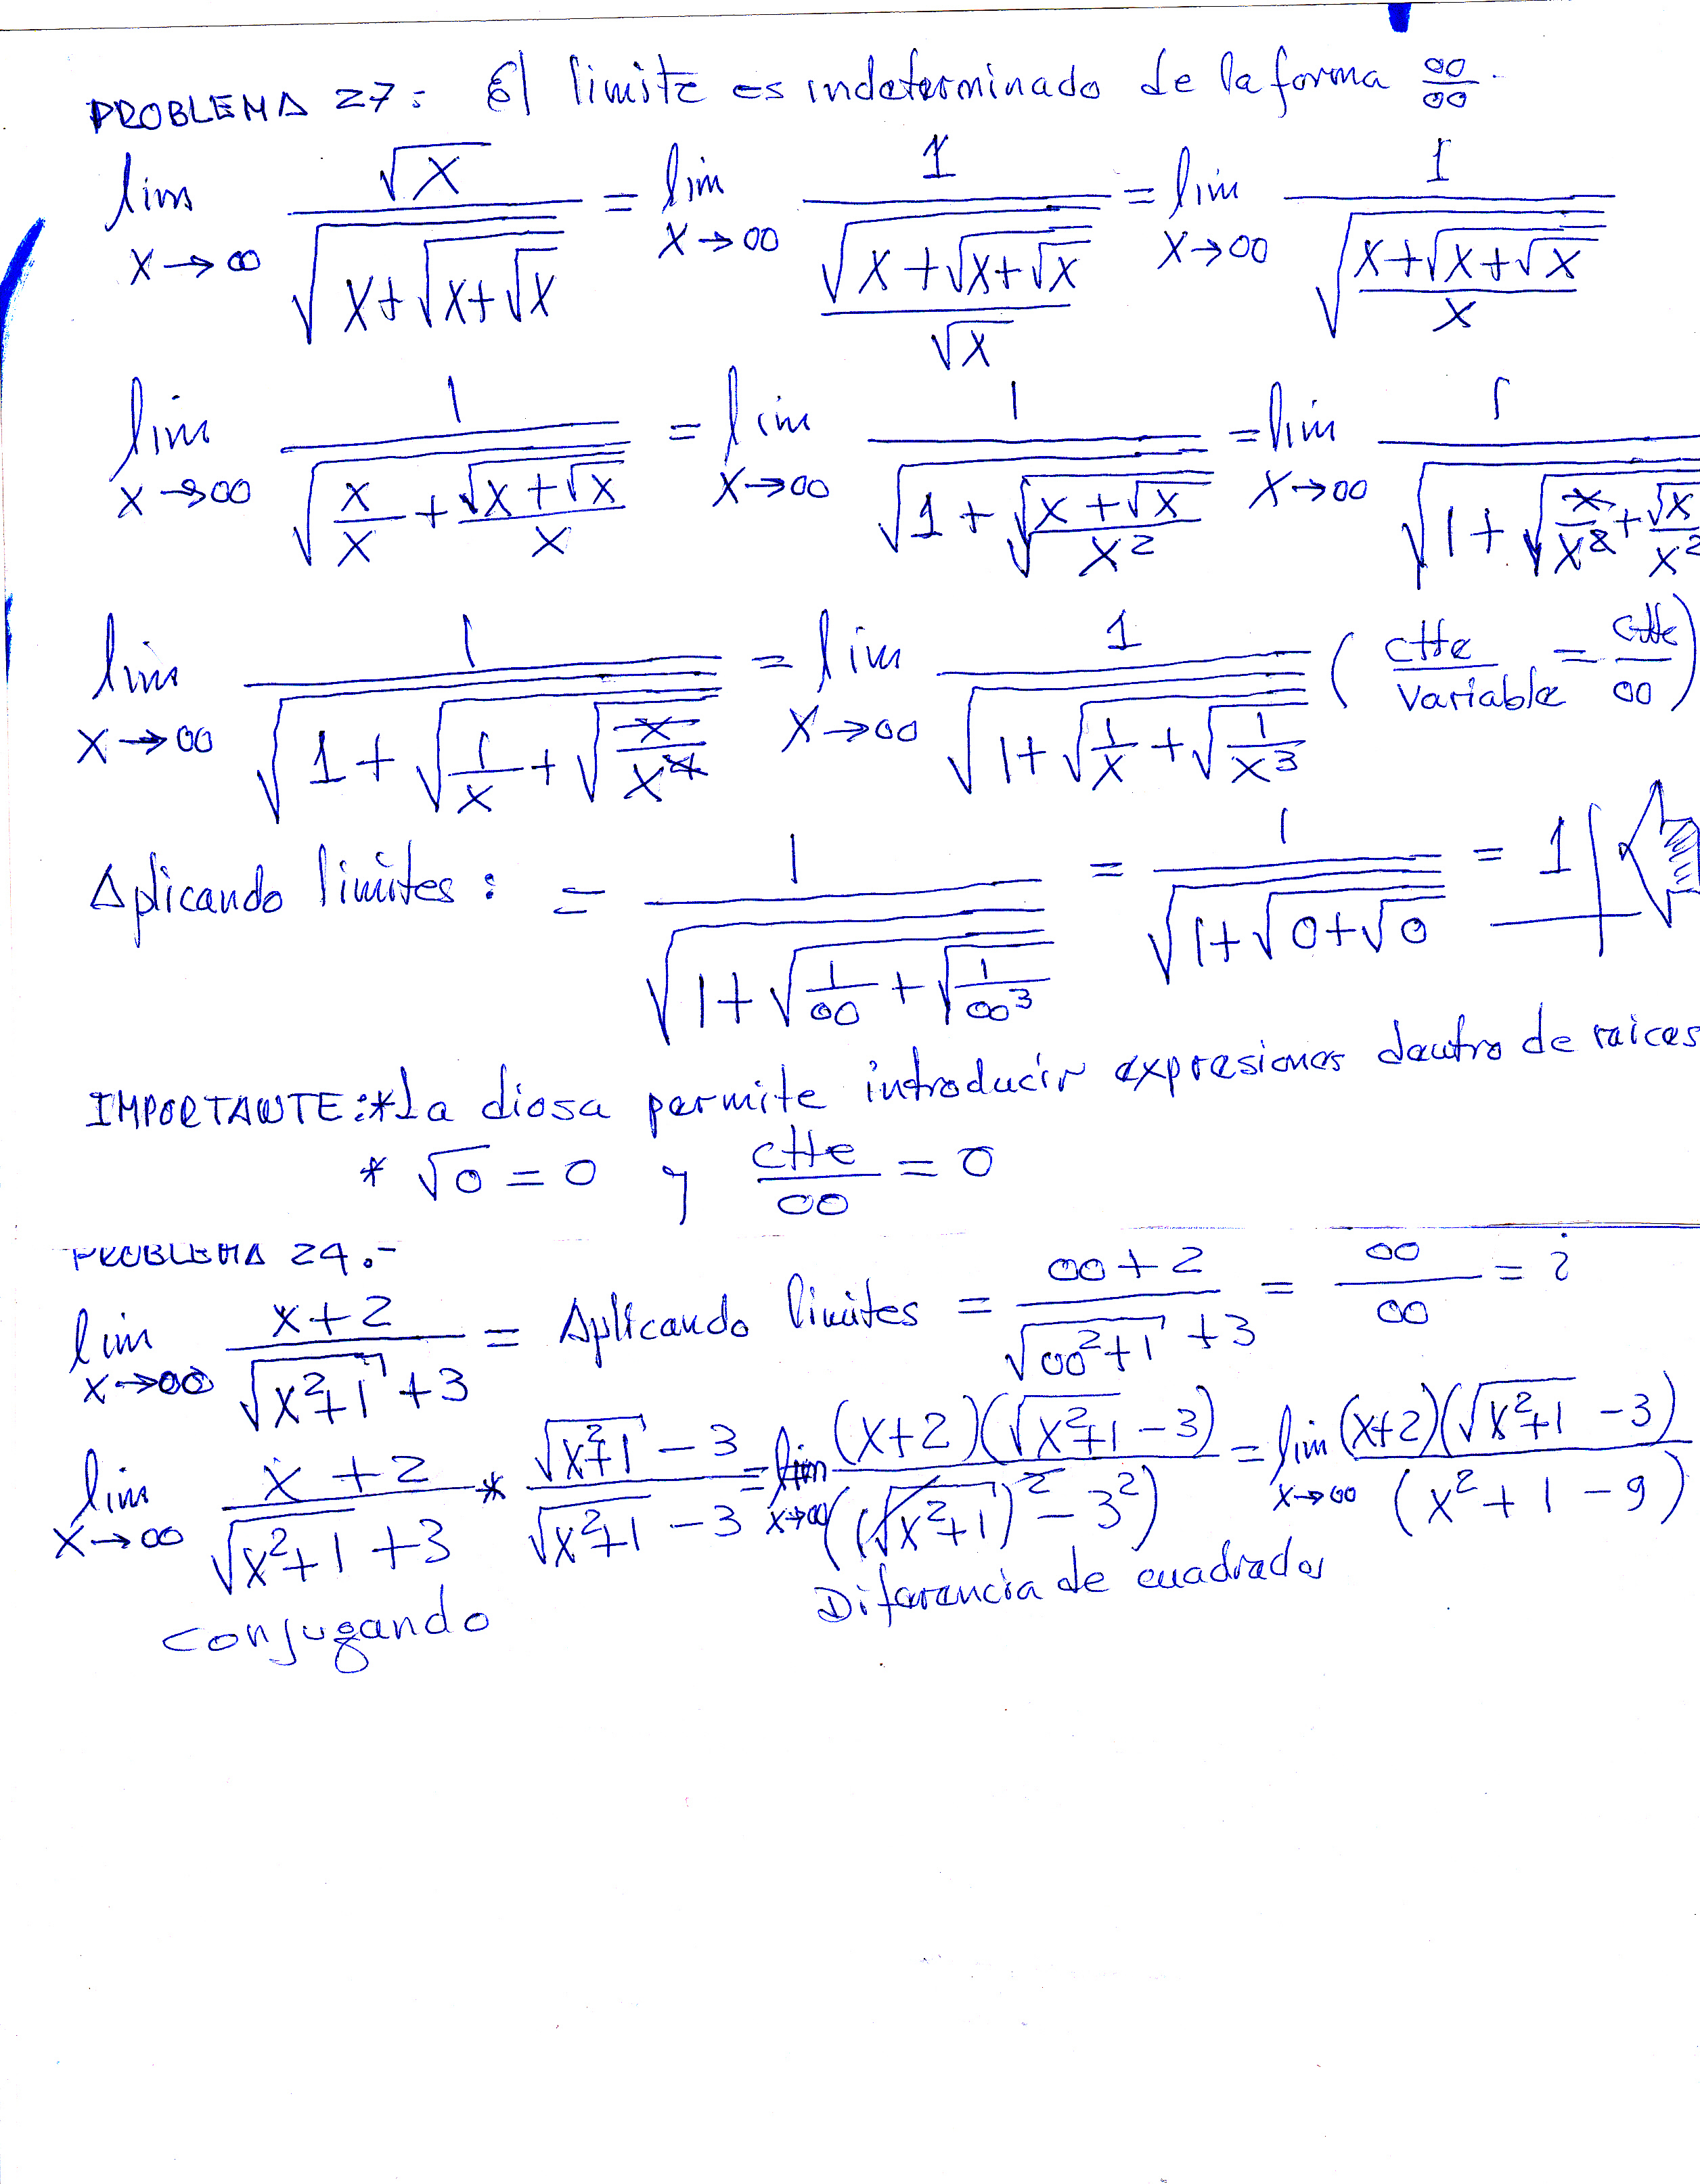 PROBLEMA 27: El limite es indeterminado de la forma ∞/∞.
lim x→∞ √x / √(x+√(x+√x)) = lim x→∞ 1 / (√(x+√(x+√x)) / √x) = lim x→∞ 1 / √((x+√(x+√x)) / x)
lim x→∞ 1 / √(x/x + √(x+√x)/x) = lim x→∞ 1 / √(1+√((x+√x)/x²)) = lim x→∞ 1 / √(1+√(x/x² + √x/x²))
lim x→∞ 1 / √(1+√(1/x+√(x/x⁴))) = lim x→∞ 1 / √(1+√(1/x+√(1/x³))) (ctte/variable = ctte/∞)
Aplicando limites: = 1 / √(1+√(1/∞+√(1/∞³))) = 1 / √(1+√(0+√0)) = 1
IMPORTANTE: * La diosa permite introducir expresiones dentro de raices
* √0 = 0 y ctte/∞ = 0
PROBLEMA 24.-
lim x→∞ (x+2) / (√(x²+1) +3) = Aplicando limites = (∞+2) / (√(∞²+1) +3) = ∞/∞ = i
lim x→∞ (x+2) / (√(x²+1) +3) * (√(x²+1) -3) / (√(x²+1) -3) = lim x→∞ (x+2)(√(x²+1) -3) / ((√(x²+1))² - 3²) = lim x→∞ (x+2)(√(x²+1) -3) / (x²+1-9)
conjugando
Diferencia de cuadrados